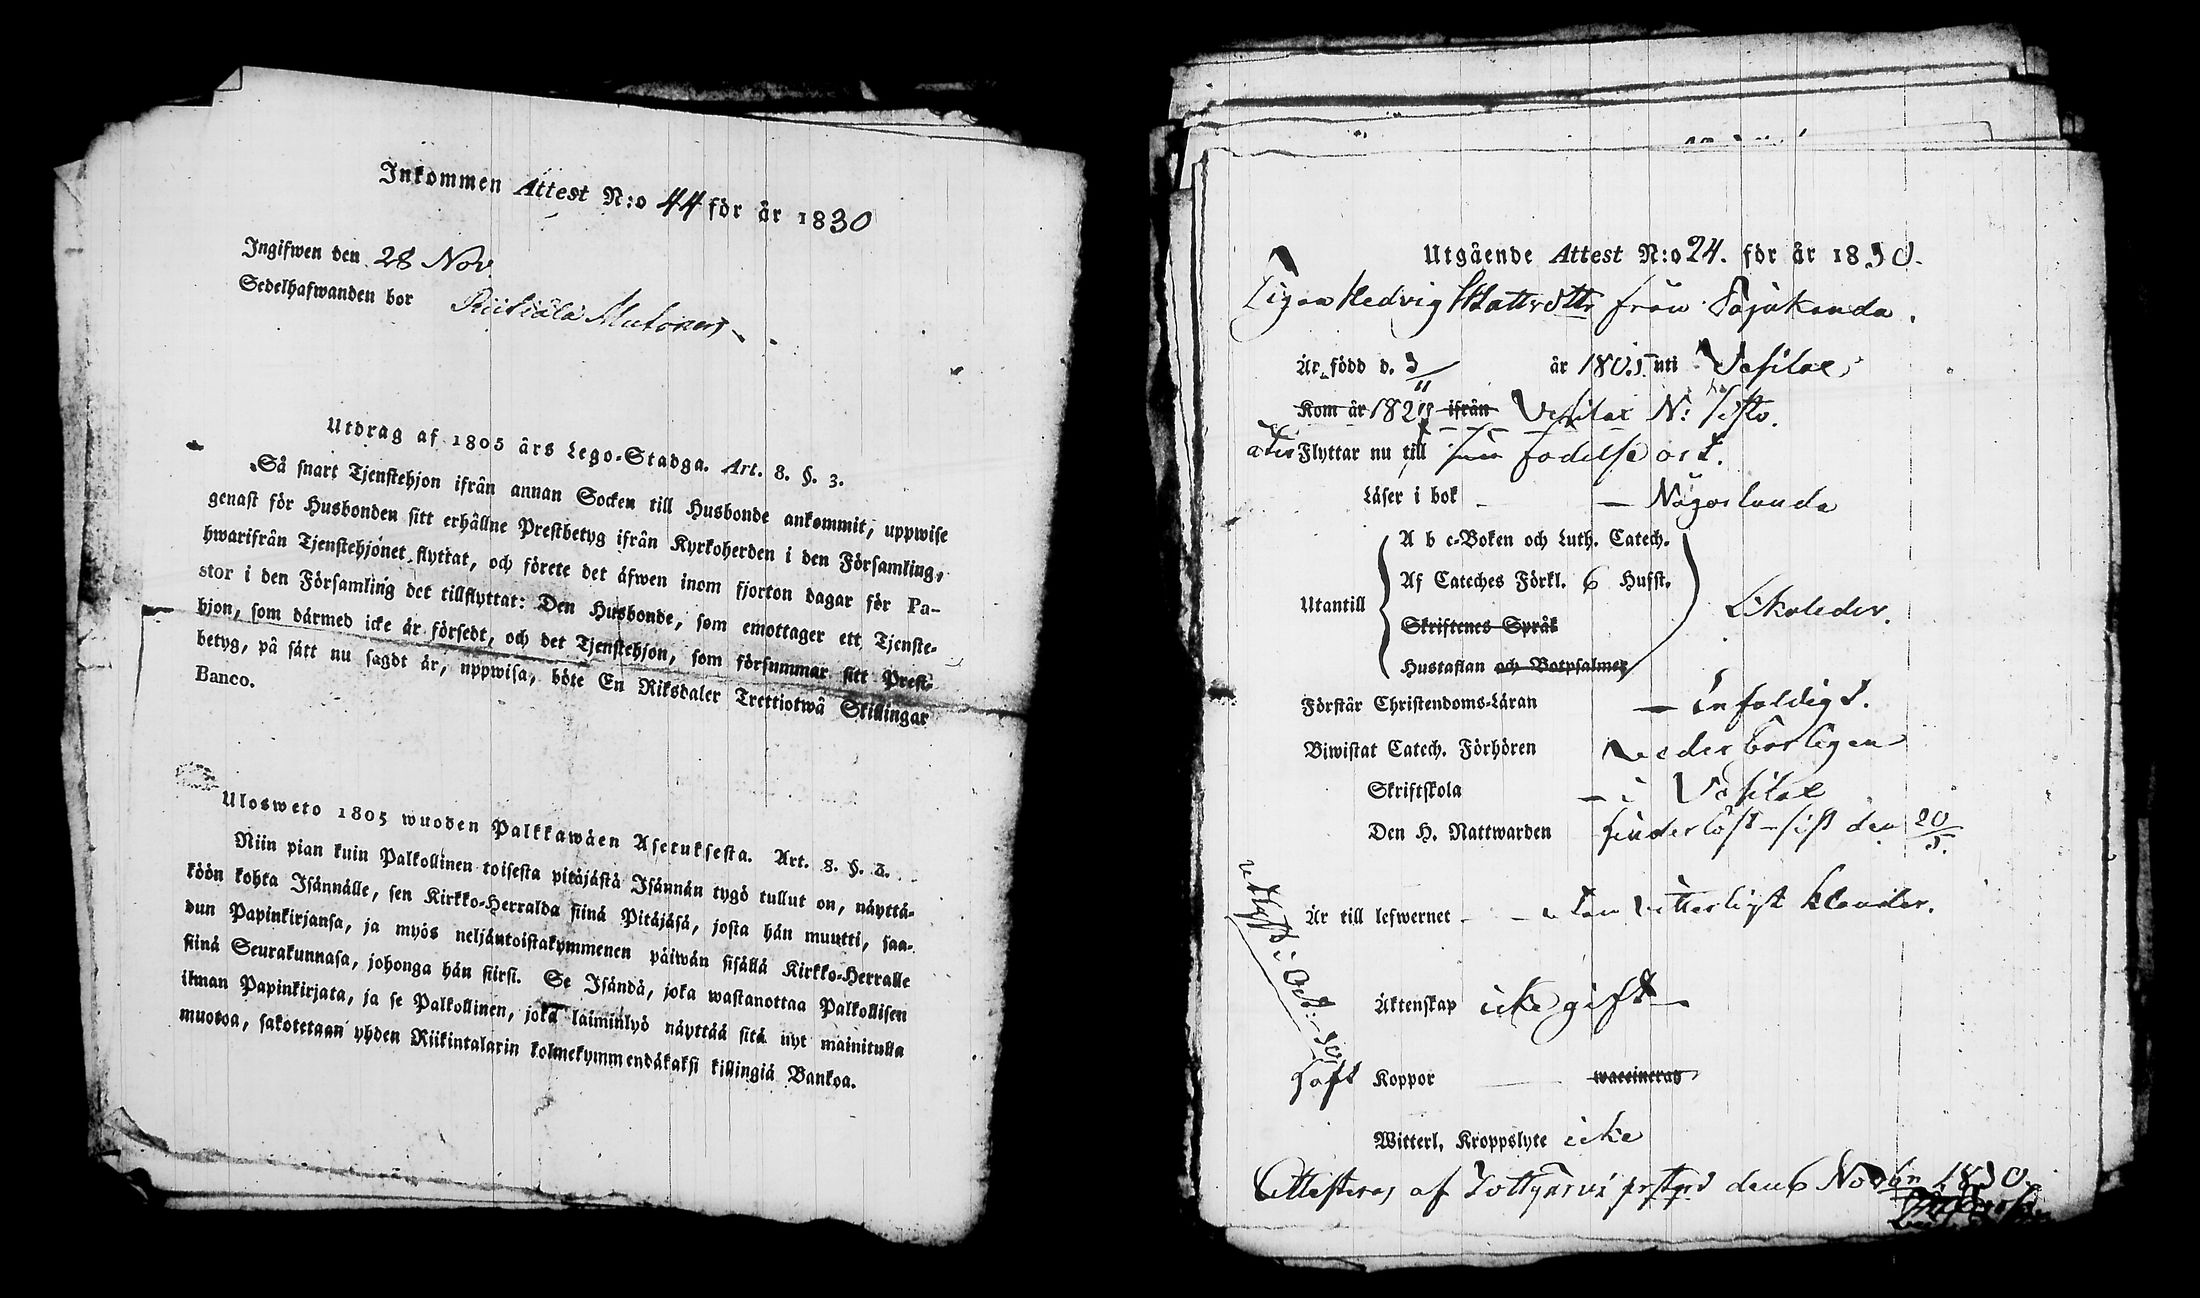 Inkommen Attest N:o 44 för år 1830
Ingifwen den 28 Nov
Sedelhafwanden bor
Utdrag af 1805 års Lego-Stadga. Art. 8. §. 3.
Så snart Tjenstehjon ifrån annan Socken till Husbonde ankommit, uppwise
genast för Husbonden sitt erhållne Prestbetyg ifrån Kyrkoherden i den Församling,
hwarifrån Tjenstehjonet flyttat, och förete det äfwen inom fjorton dagar för Pa-
stor i den Församling det tillflyttat: Den Husbonde, som emottager ett Tjenste-
hjon, som därmed icke är försedt, och det Tjenstehjon, som försummar sitt Prest-
betyg, på sätt nu sagdt är, uppwisa, böte En Riksdaler Trettiotwå Skillingar
Banco.
Ulosweto 1805 wuoden Palkkawäen Asetuksesta. Art. 8. §. 3.
Niin pian kuin Palkollinen toisesta pitäjästä Isännän tygö tullut on, näyttä-
köön kohta Isännälle, sen Kirkko-Herralda siinä Pitäjäsä, josta hän muutti, saa-
dun Papinkirjansa, ja myös neljäntoistakymmenen päiwän sisällä Kirkko-Herralle
siinä Seurakunnasa, johonga hän siirsi. Se Isändä, joka wastanottaa Palkollisen
ilman Papinkirjata, ja se Palkollinen, joka laiminlyö näyttää sitä nyt mainitulla
muotoa, sakotetaan yhden Riikintalarin kolmekymmendäkaksi killingiä Bankoa.
Utgående Attest N:o 24. för år 1830.
Pigan Hedvig Mattsdttr från Pajukanda.
Är född d. 3/11 år 1805 uti Vesilax
Kom år 182 ifrån Vesilax N:
åter Flyttar nu till sin födelse ort.
Läser i bok – – Någorlunda
A b c-Boken och Luth. Catech.
Af Cateches Förkl. 6 Hufst.
Utantill
Likaledes.
Skriftenes Språk
Hustaflan och Botpsalmer
Förstår Christendoms-Läran – Enfaldigt.
Biwistat Catech. Förhören wederbörligen
Skriftskola – i Vesilax
Den H. Nattwarden sist den 20/5.
Är till lefwernet – – utan witterligt klander.
utlyst i Oct: 30
Äktenskap icke gift
haft Koppor waccinerad
Witterl. Kroppslyte icke
Attesteras af Tottijärvi den 6 Novbr 1830.